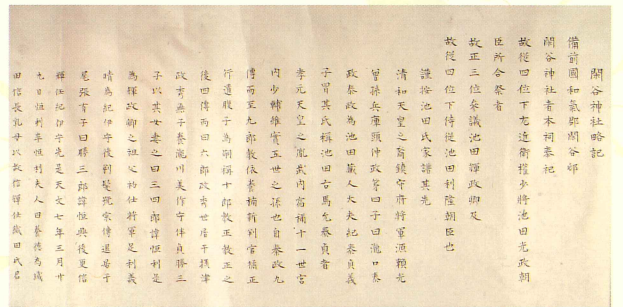 閑谷神社略記
備前國和氣郡閑谷邨
閑谷神社者本祠奉祀
故従四位下左近衛權少將池田光政朝
臣所合祭者
故正三位參議池田輝政卿及
故従四位下侍従池田利隆朝臣也
謹按池田氏家譜其先
清和天皇之裔鎮守府將軍源頼光
曽孫兵庫頭仲政第四子曰瀧口泰
政泰政為池田藏人大夫紀泰貞義
子冒其氏稱池田右馬允泰貞者
孝元天皇之胤武内宿禰十一世宮
内少輔維實五世之孫也自泰政九
傳而至九郎教依養楠新判官橘正
行遺腹子為嗣稱十郎教正教正之
後四傳而曰六郎政秀世居于攝津
政秀無子養瀧川美作守伴貞勝三
子以其女妻之曰三四郎諱恒利是
為輝政卿之祖父始仕將軍足利義
晴為紀伊守後剃髪號宗傳退居于
尾張有子曰勝三郎諱恒興後更信
輝任紀伊守先是天文七年三月廿
九日恒利卒恒利夫人曰養徳為織
田信長乳母以故信輝仕織田氏君